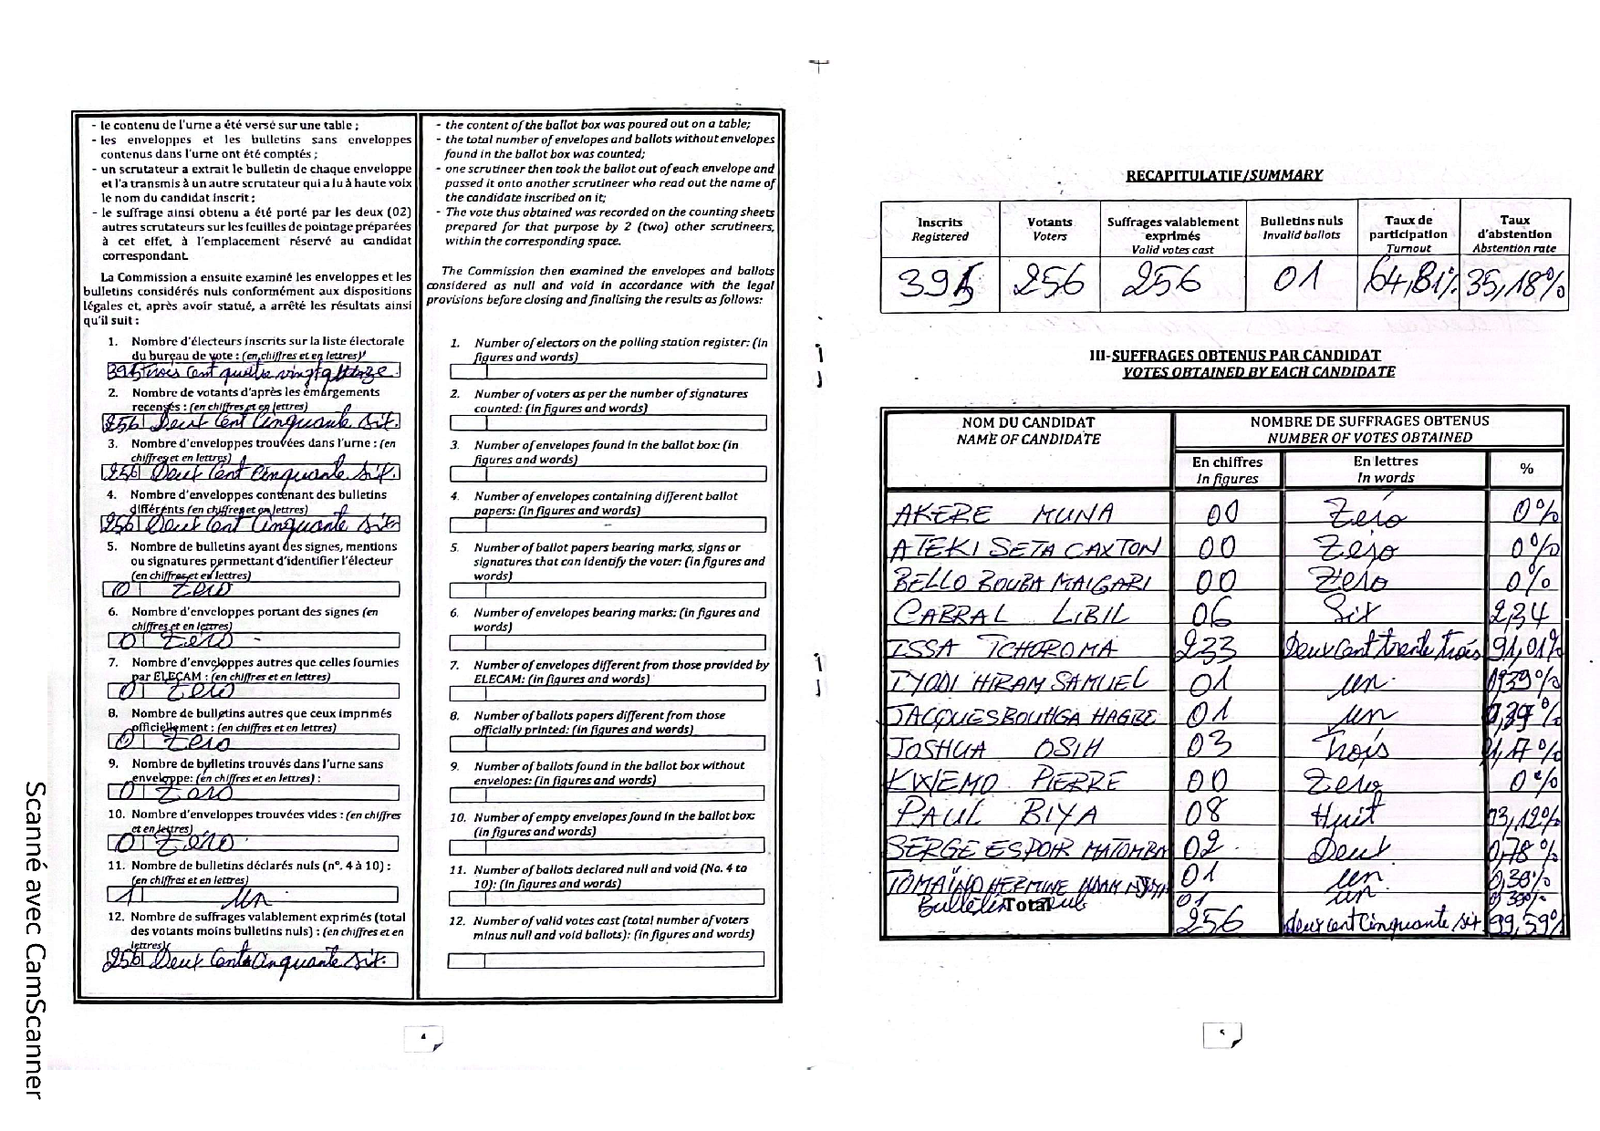 - le contenu de l'urne a été versé sur une table ;
- les enveloppes et les bulletins sans enveloppes
contenus dans l'urne ont été comptés ;
- un scrutateur a extrait le bulletin de chaque enveloppe
et l'a transmis à un autre scrutateur qui a lu à haute voix
le nom du candidat inscrit ;
- le suffrage ainsi obtenu a été porté par les deux (02)
autres scrutateurs sur les feuilles de pointage préparées
à cet effet, à l'emplacement réservé au candidat
correspondant.
La Commission a ensuite examiné les enveloppes et les
bulletins considérés nuls conformément aux dispositions
légales et, après avoir statué, a arrêté les résultats ainsi
qu'il suit :
1. Nombre d'électeurs inscrits sur la liste électorale
du bureau de vote : (en chiffres et en lettres)
395 trois cent quatre vingt quinze
2. Nombre de votants d'après les émargements
recensés : (en chiffres et en lettres)
256 Deux Cent Cinquante Six.
3. Nombre d'enveloppes trouvées dans l'urne : (en
chiffres et en lettres)
256 Deux Cent Cinquante Six.
4. Nombre d'enveloppes contenant des bulletins
différents (en chiffres et en lettres)
256 Deux Cent Cinquante Six
5. Nombre de bulletins ayant des signes, mentions
ou signatures permettant d'identifier l'électeur
(en chiffres et en lettres)
0 Zero
6. Nombre d'enveloppes portant des signes (en
chiffres et en lettres)
0 Zero -
7. Nombre d'enveloppes autres que celles fournies
par ELECAM : (en chiffres et en lettres)
0 Zero
8. Nombre de bulletins autres que ceux imprimés
officiellement : (en chiffres et en lettres)
0 Zero
9. Nombre de bulletins trouvés dans l'urne sans
enveloppe: (en chiffres et en lettres) :
0 Zero
10. Nombre d'enveloppes trouvées vides : (en chiffres
et en lettres)
0 Zero.
11. Nombre de bulletins déclarés nuls (n°. 4 à 10) :
(en chiffres et en lettres)
1 Un
12. Nombre de suffrages valablement exprimés (total
des votants moins bulletins nuls) : (en chiffres et en
lettres)
256 Deux Cent Cinquante Six.
4
- the content of the ballot box was poured out on a table;
- the total number of envelopes and ballots without envelopes
found in the ballot box was counted;
- one scrutineer then took the ballot out of each envelope and
passed it onto another scrutineer who read out the name of
the candidate inscribed on it;
- The vote thus obtained was recorded on the counting sheets
prepared for that purpose by 2 (two) other scrutineers,
within the corresponding space.
The Commission then examined the envelopes and ballots
considered as null and void in accordance with the legal
provisions before closing and finalising the results as follows:
1. Number of electors on the polling station register: (in
figures and words)
2. Number of voters as per the number of signatures
counted: (in figures and words)
3. Number of envelopes found in the ballot box: (in
figures and words)
4. Number of envelopes containing different ballot
papers: (in figures and words)
5. Number of ballot papers bearing marks, signs or
signatures that can identify the voter: (in figures and
words)
6. Number of envelopes bearing marks: (in figures and
words)
7. Number of envelopes different from those provided by
ELECAM: (in figures and words)
8. Number of ballots papers different from those
officially printed: (in figures and words)
9. Number of ballots found in the ballot box without
envelopes: (in figures and words)
10. Number of empty envelopes found in the ballot box:
(in figures and words)
11. Number of ballots declared null and void (No. 4 to
10): (in figures and words)
12. Number of valid votes cast (total number of voters
minus null and void ballots): (in figures and words)
RECAPITULATIF/SUMMARY
Inscrits Registered | Votants Voters | Suffrages valablement exprimés Valid votes cast | Bulletins nuls Invalid ballots | Taux de participation Turnout | Taux d'abstention Abstention rate
395 256 256 01 64,81% 35,18%
III-SUFFRAGES OBTENUS PAR CANDIDAT
VOTES OBTAINED BY EACH CANDIDATE
NOM DU CANDIDAT NAME OF CANDIDATE | NOMBRE DE SUFFRAGES OBTENUS NUMBER OF VOTES OBTAINED
En chiffres In figures | En lettres In words | %
AKERE MUNA 00 Zéro 0%
ATEKI SETA CAXTON 00 Zéro 0%
BELLO BOUBA MAIGARI 00 Zero 0%
CABRAL LIBIL 06 Six 2,34
ISSA TCHOROMA 233 Deux cent trente trois 91,01%
IYODI HIRAM SAMUEL 01 un. 0,39%
JACQUES BOUHGA HAGBE 01 un 0,39%
JOSHUA OSIH 03 Trois 1,17%
KWEMO PIERRE 00 Zero 0%
PAUL BIYA 08 Huit 03,12%
SERGE ESPOIR MATOMBA 02 Deux 0,78%
TOMAÏNO HERMINE 01 un 0,38%
Bulletin nul 01 un 0,39%
Total 256 deux cent Cinquante six 99,59%
5
Scanné avec CamScanner